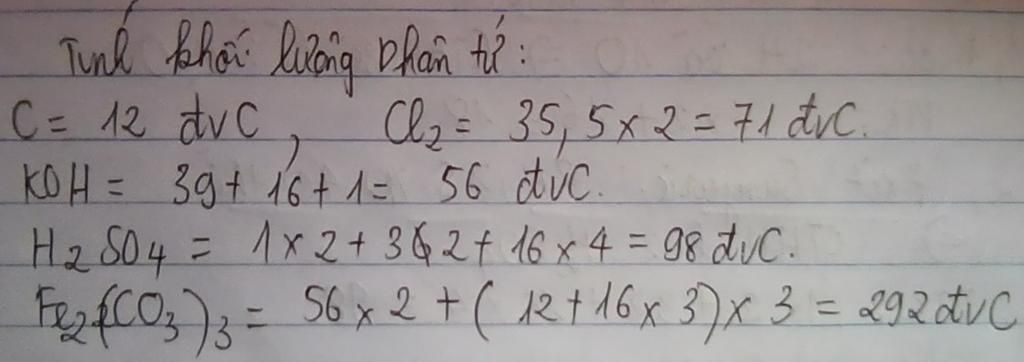 Tính khối lượng phân tử:
C = 12 đvC, Cl₂ = 35,5 x 2 = 71 đvC.
KOH = 39 + 16 + 1 = 56 đvC.
H₂SO₄ = 1 x 2 + 32 + 16 x 4 = 98 đvC.
Fe₂(CO₃)₃ = 56 x 2 + (12 + 16 x 3) x 3 = 292 đvC